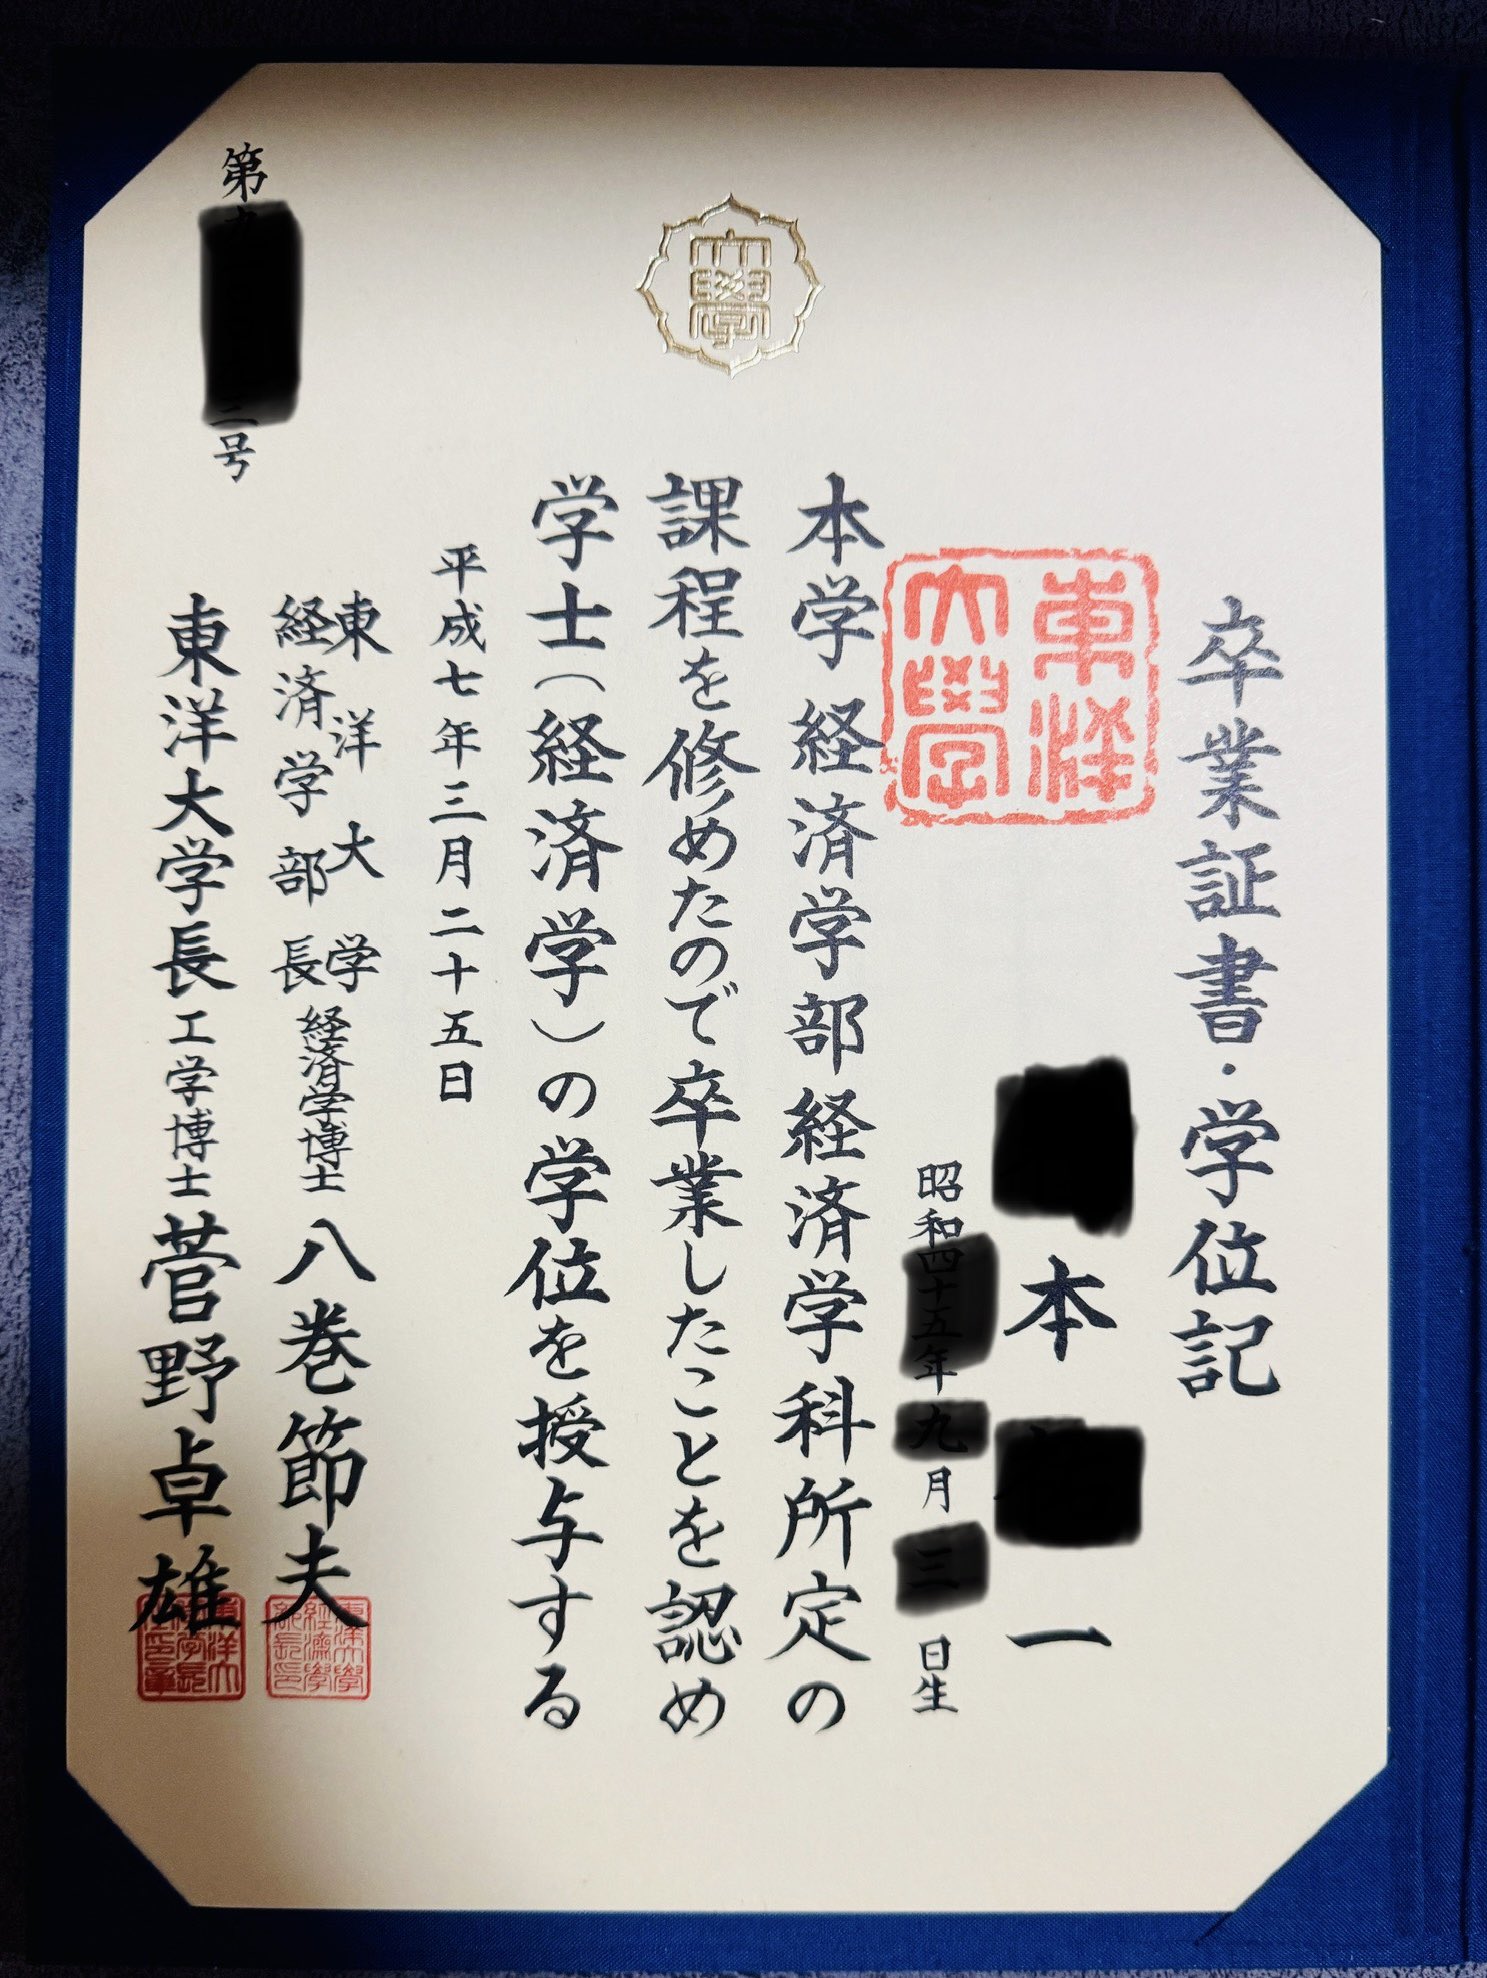 卒業証書・学位記
東洋大學
本 一
昭和 年 月 日生
本学経済学部経済学科所定の
課程を修めたので卒業したことを認め
学士（経済学）の学位を授与する
平成七年三月二十五日
東洋大学
経済学部長 経済学博士 八巻節夫
東洋大学長 工学博士 菅野卓雄
第 号
大學